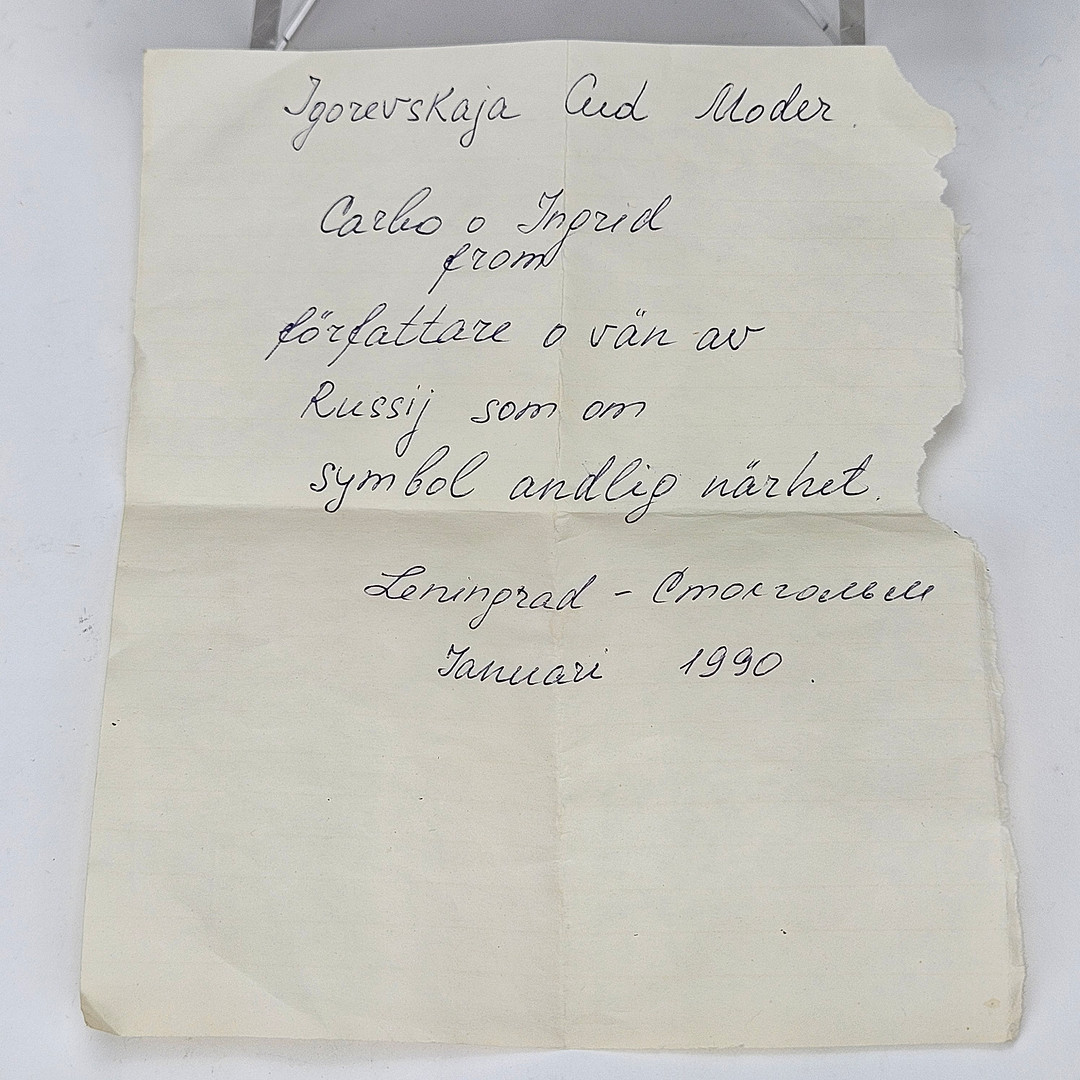 Igorevskaja Cud Moder.
Carlo o Ingrid
from
författare o vän av
Russij som om
symbol andlig närhet.
Leningrad - Стокгольм
Januari 1990.